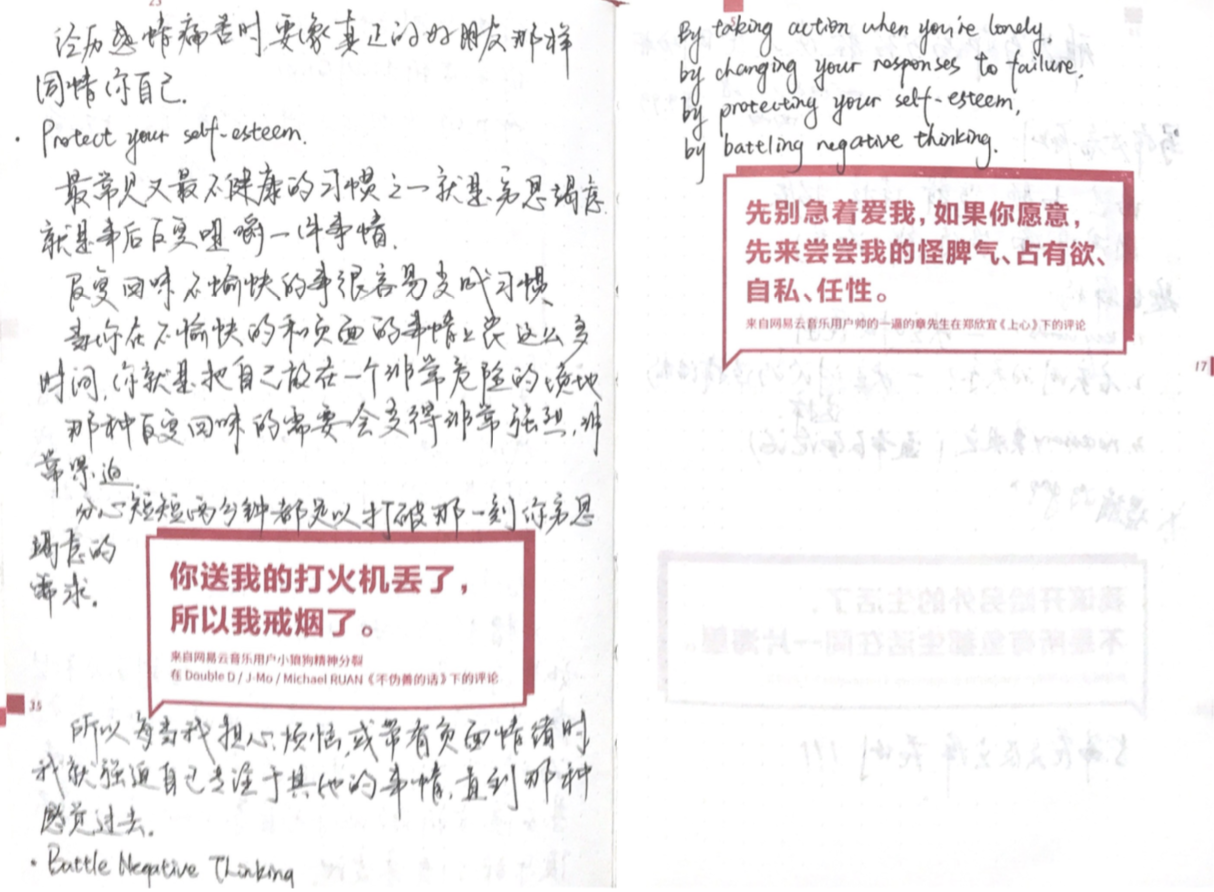 经历感情痛苦时要象真正的好朋友那样
同情你自己.
· Protect your self-esteem.
最常见又最不健康的习惯之一就是穷思竭虑.
就是事后反复咀嚼一件事情.
反复回味不愉快的事很容易变成习惯
当你在不愉快的和负面的事情上花这么多
时间,你就是把自己放在一个非常危险的境地
那种反复回味的需要会变得非常强烈,非
常紧迫.
分心短短两分钟都足以打破那一刻你穷思
竭虑的
需求.
你送我的打火机丢了，
所以我戒烟了。
来自网易云音乐用户小狼狗精神分裂
在 Double D / J-Mo / Michael RUAN《不伪善的话》下的评论
35
所以每当我担心,烦恼,或带有负面情绪时
我就强迫自己专注于其他的事情,直到那种
感觉过去.
· Battle Negative Thinking
By taking action when you're lonely,
by changing your responses to failure,
by protecting your self-esteem,
by battling negative thinking.
先别急着爱我，如果你愿意，
先来尝尝我的怪脾气、占有欲、
自私、任性。
来自网易云音乐用户帅的一逼的章先生在郑欣宜《上心》下的评论
17